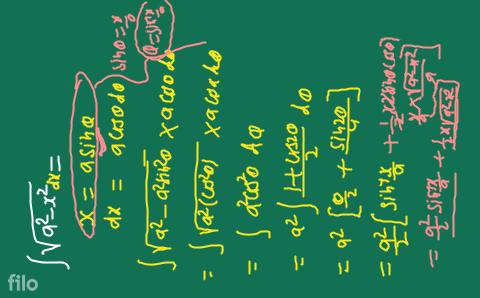 ∫√a²-x² dx =
x = a sinθ
sinθ = x/a
θ = sin⁻¹x/a
dx = a cosθ dθ
∫√a²-a²sin²θ × a cosθ dθ
= ∫√a²(cos²θ) × a cosθ dθ
= ∫ a²cos²θ dθ
= a² ∫ 1+cos2θ/2 dθ
= a² [θ/2 + sin2θ/4]
= a²/2 [sin⁻¹x/a
= a²/2 sin⁻¹x/a
filo